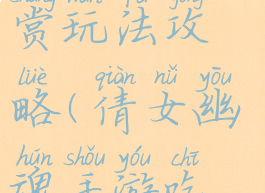 shǎng wán fǎ gōng
赏玩法攻
lüè qiàn nǚ yōu
略(倩女幽
hún shǒu yóu chī
魂手游吃